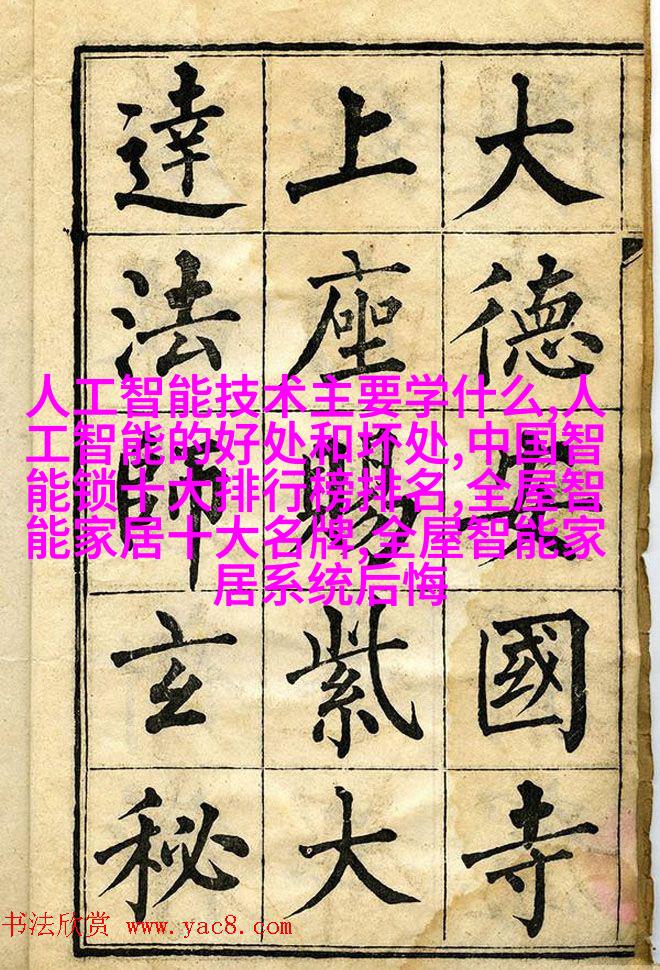 大德安國寺
上座賜紫大
達法師玄秘
人工智能技术主要学什么,人
工智能的好处和坏处,中国智
能锁十大排行榜排名,全屋智
能家居十大名牌,全屋智能家
居系统后悔
书法欣赏 www.yac8.com